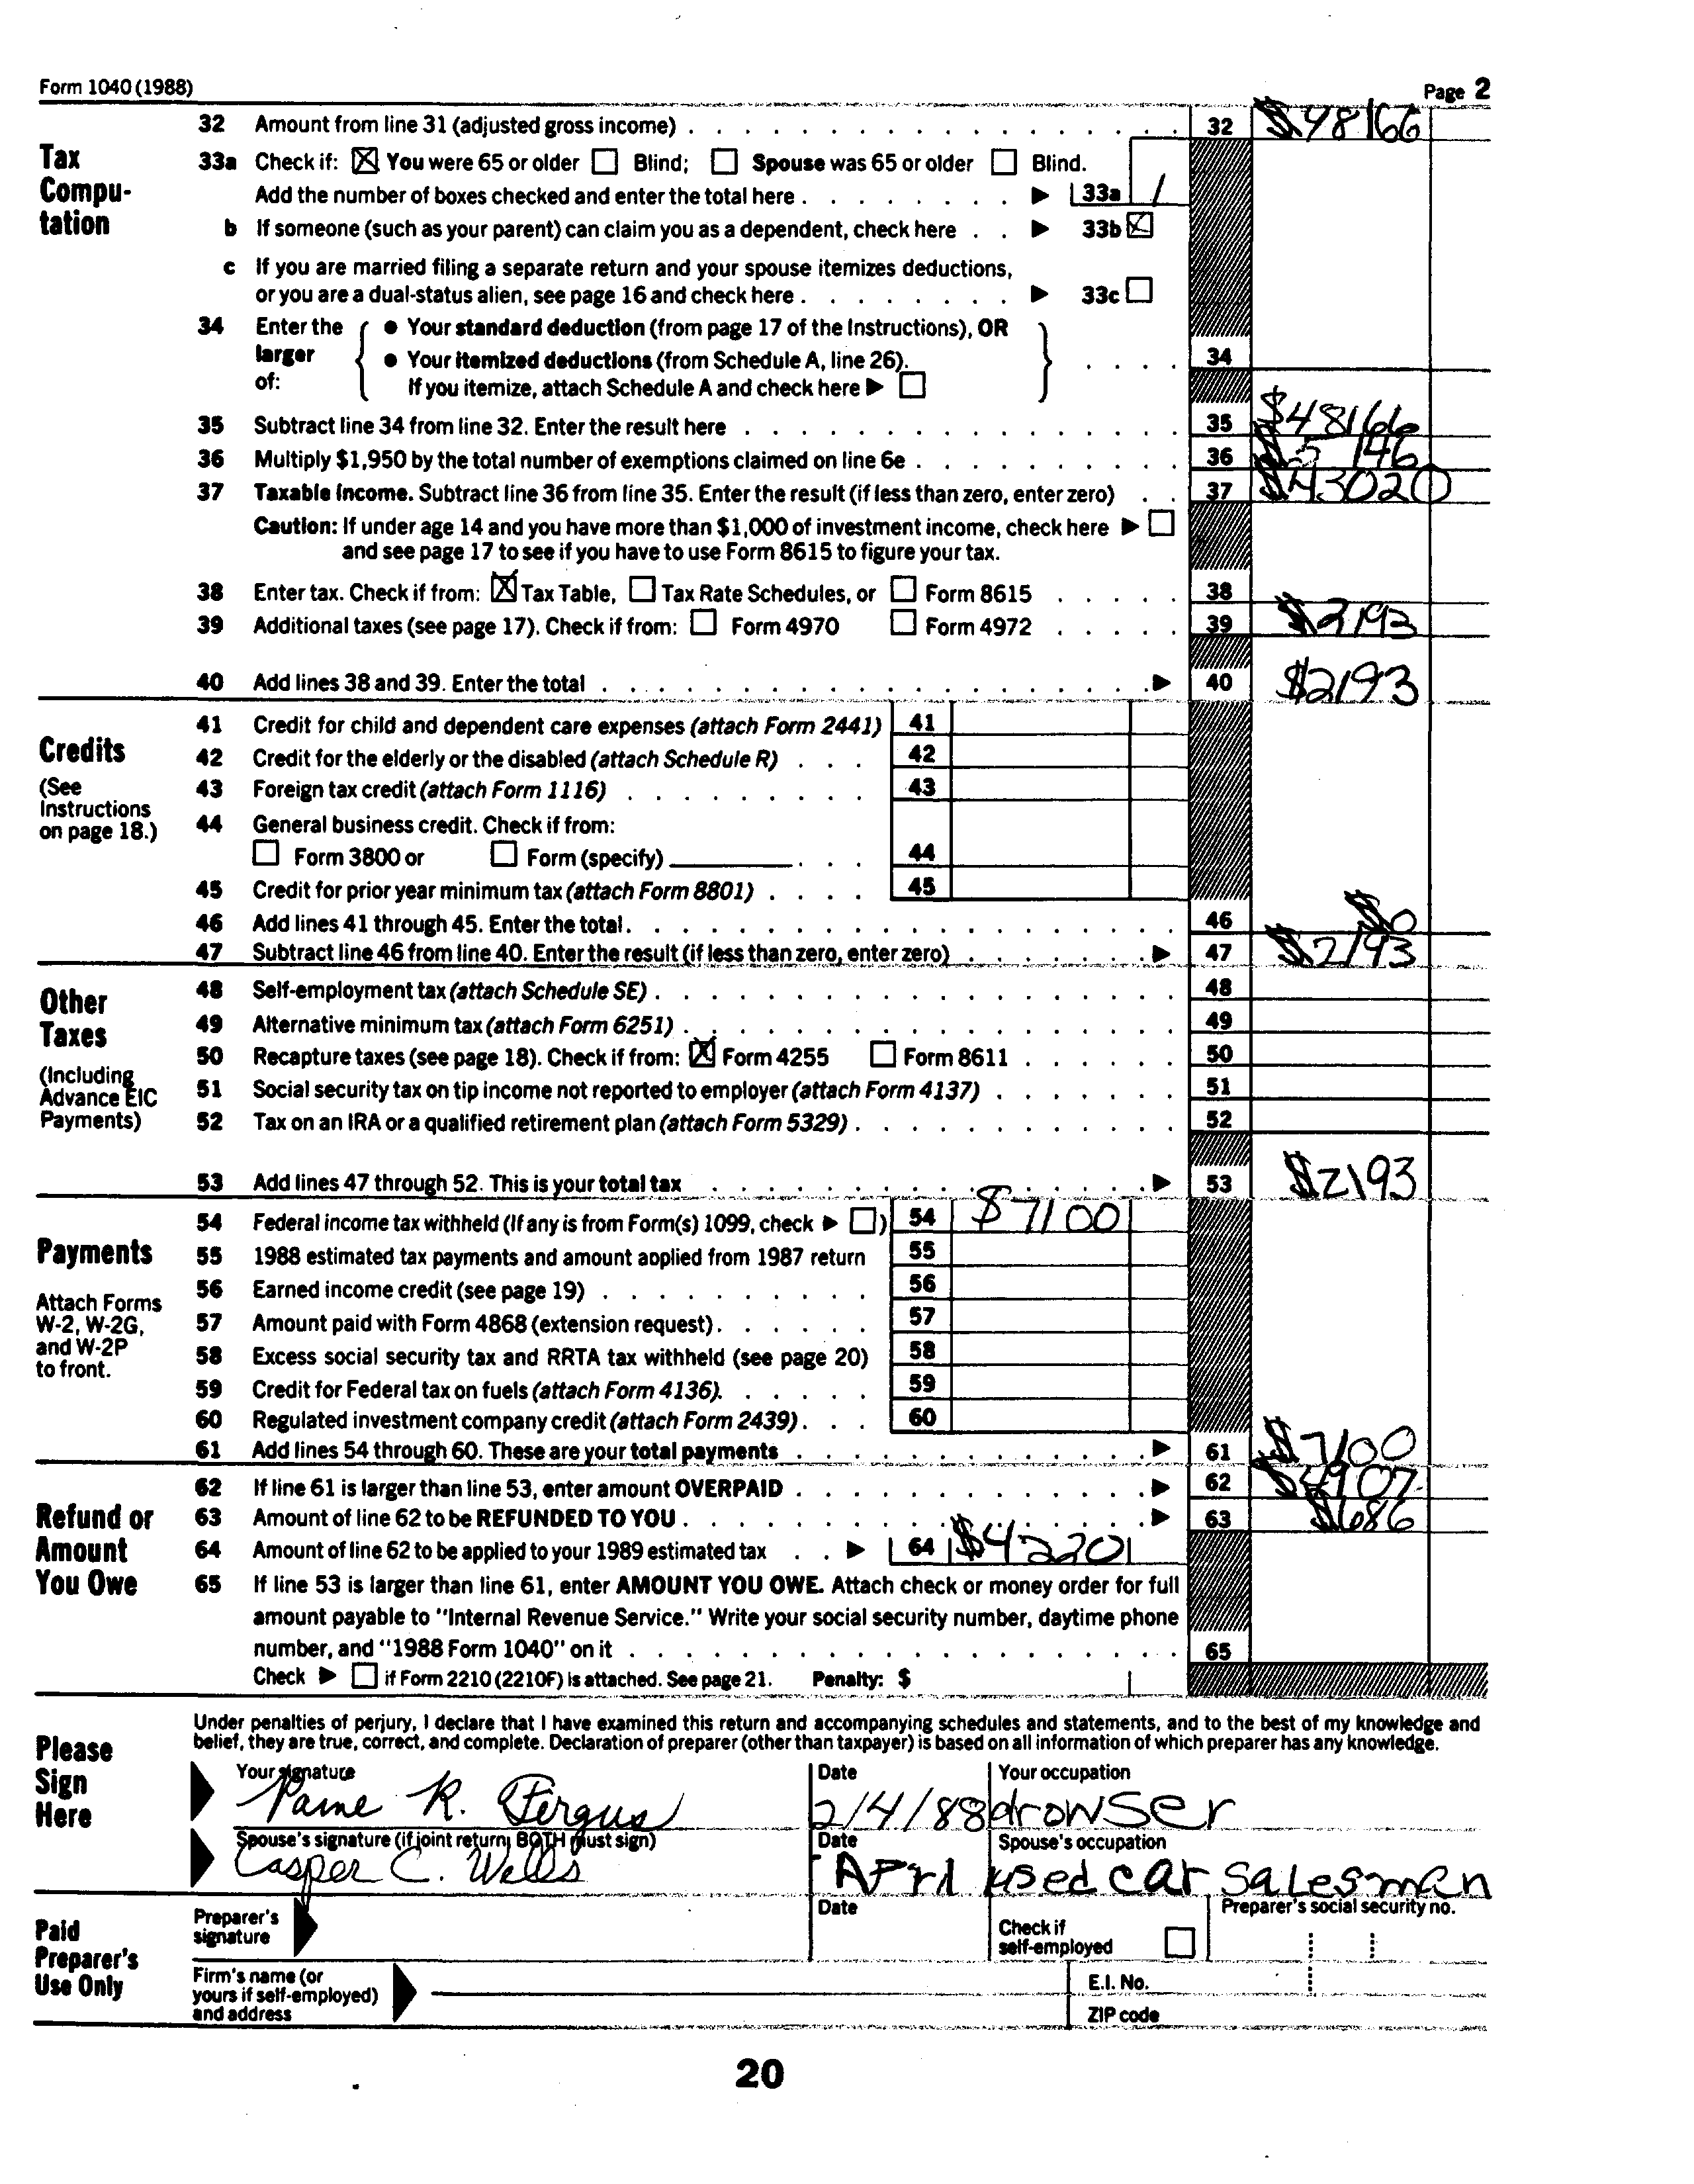 Form 1040 (1988) Page 2
Tax Compu-tation
32 Amount from line 31 (adjusted gross income) 32 $48166
33a Check if: ☒ You were 65 or older ☐ Blind; ☐ Spouse was 65 or older ☐ Blind.
Add the number of boxes checked and enter the total here ▶ 33a 1
b If someone (such as your parent) can claim you as a dependent, check here ▶ 33b ☒
c If you are married filing a separate return and your spouse itemizes deductions,
or you are a dual-status alien, see page 16 and check here ▶ 33c ☐
34 Enter the larger of: { ● Your standard deduction (from page 17 of the Instructions), OR
● Your itemized deductions (from Schedule A, line 26). } 34
If you itemize, attach Schedule A and check here ▶ ☐
35 Subtract line 34 from line 32. Enter the result here 35 $48166
36 Multiply $1,950 by the total number of exemptions claimed on line 6e 36 $5146
37 Taxable income. Subtract line 36 from line 35. Enter the result (if less than zero, enter zero) 37 $43020
Caution: If under age 14 and you have more than $1,000 of investment income, check here ▶ ☐
and see page 17 to see if you have to use Form 8615 to figure your tax.
38 Enter tax. Check if from: ☒ Tax Table, ☐ Tax Rate Schedules, or ☐ Form 8615 38
39 Additional taxes (see page 17). Check if from: ☐ Form 4970 ☐ Form 4972 39 $2193
40 Add lines 38 and 39. Enter the total ▶ 40 $2193
Credits
(See Instructions on page 18.)
41 Credit for child and dependent care expenses (attach Form 2441) 41
42 Credit for the elderly or the disabled (attach Schedule R) 42
43 Foreign tax credit (attach Form 1116) 43
44 General business credit. Check if from:
☐ Form 3800 or ☐ Form (specify) 44
45 Credit for prior year minimum tax (attach Form 8801) 45
46 Add lines 41 through 45. Enter the total. 46 $0
47 Subtract line 46 from line 40. Enter the result (if less than zero, enter zero) ▶ 47 $2193
Other Taxes
(Including Advance EIC Payments)
48 Self-employment tax (attach Schedule SE) 48
49 Alternative minimum tax (attach Form 6251) 49
50 Recapture taxes (see page 18). Check if from: ☒ Form 4255 ☐ Form 8611 50
51 Social security tax on tip income not reported to employer (attach Form 4137) 51
52 Tax on an IRA or a qualified retirement plan (attach Form 5329) 52
53 Add lines 47 through 52. This is your total tax ▶ 53 $2193
Payments
Attach Forms W-2, W-2G, and W-2P to front.
54 Federal income tax withheld (If any is from Form(s) 1099, check ▶ ☐) 54 $7100
55 1988 estimated tax payments and amount applied from 1987 return 55
56 Earned income credit (see page 19) 56
57 Amount paid with Form 4868 (extension request) 57
58 Excess social security tax and RRTA tax withheld (see page 20) 58
59 Credit for Federal tax on fuels (attach Form 4136). 59
60 Regulated investment company credit (attach Form 2439) 60
61 Add lines 54 through 60. These are your total payments ▶ 61 $7100
Refund or Amount You Owe
62 If line 61 is larger than line 53, enter amount OVERPAID ▶ 62 $4907
63 Amount of line 62 to be REFUNDED TO YOU ▶ 63 $686
64 Amount of line 62 to be applied to your 1989 estimated tax ▶ 64 $4220
65 If line 53 is larger than line 61, enter AMOUNT YOU OWE. Attach check or money order for full
amount payable to "Internal Revenue Service." Write your social security number, daytime phone
number, and "1988 Form 1040" on it 65
Check ▶ ☐ if Form 2210 (2210F) is attached. See page 21. Penalty: $
Please Sign Here
Under penalties of perjury, I declare that I have examined this return and accompanying schedules and statements, and to the best of my knowledge and
belief, they are true, correct, and complete. Declaration of preparer (other than taxpayer) is based on all information of which preparer has any knowledge.
Your signature Date Your occupation
Paine R. Fergus 2/4/88 drowser
Spouse's signature (if joint return, BOTH must sign) Date Spouse's occupation
Casper C. Wells April used car salesman
Paid Preparer's Use Only
Preparer's signature Date Check if self-employed ☐ Preparer's social security no.
Firm's name (or yours if self-employed) and address E.I. No.
ZIP code
20